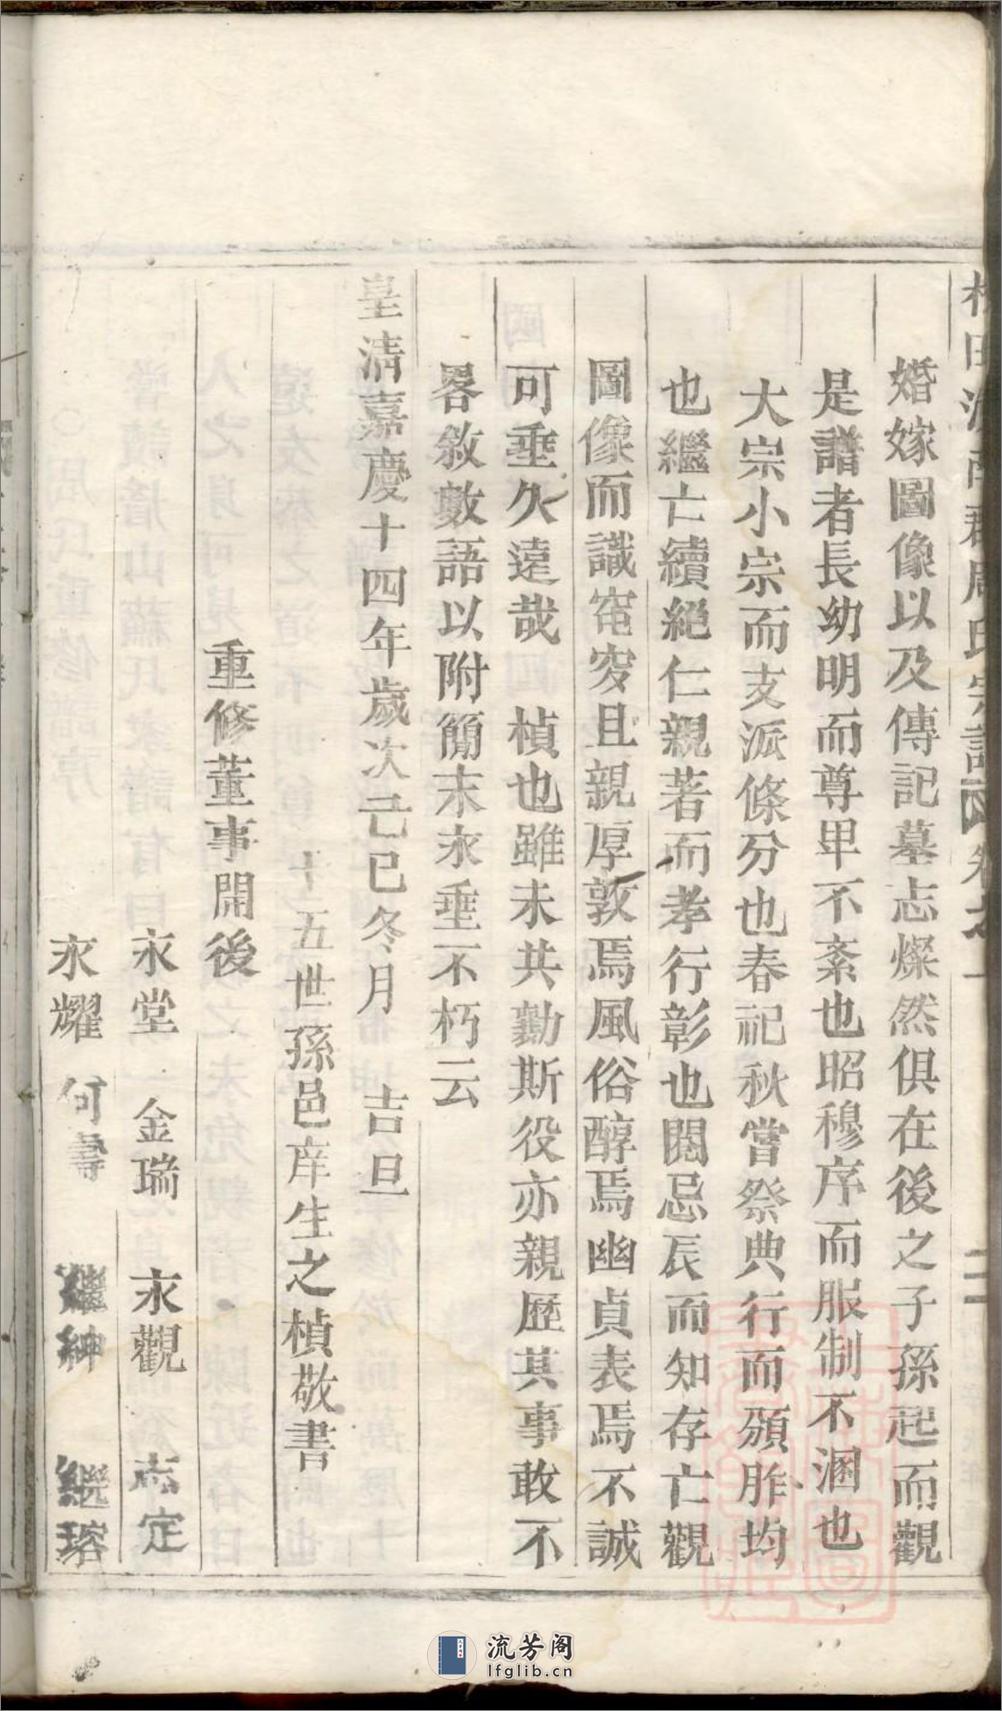 婚嫁圖像以及傳記墓志燦然俱在後之子孫起而觀
是譜者長幼明而尊卑不紊也昭穆序而服制不溷也
大宗小宗而支派條分也春祀秋嘗祭典行而頒胙均
也繼亡續絕仁親著而孝行彰也閱忌辰而知存亡觀
圖像而識窀穸且親厚敦焉風俗醇焉幽貞表焉不誠
可垂久遠哉 楨也雖未共勷斯役亦親歷其事敢不
畧敘數語以附簡末永垂不朽云
皇清嘉慶十四年歲次己巳冬月 吉旦
十五世孫邑庠生之楨敬書
重修董事開後
永堂 金瑞 永觀 志定
永耀 何壽 繼紳 繼瑢
流芳阁
lfglib.cn